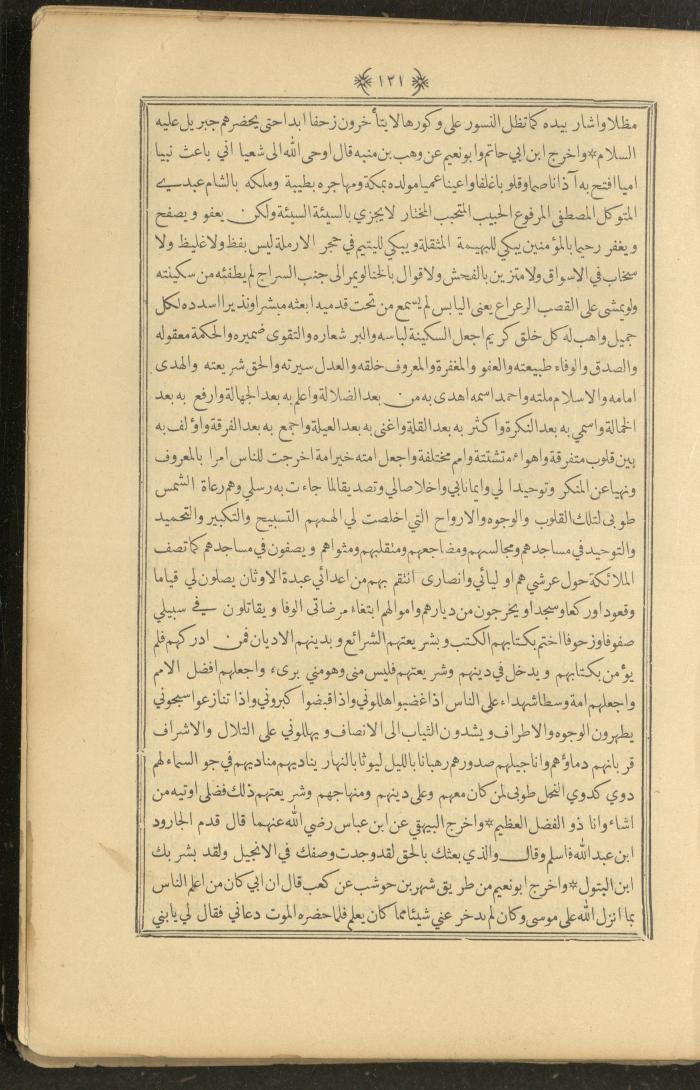 ١٢١
مظلا واشار بيده كما تظل النسور على وكورها لا يتأخرون زحفا ابدا حتى يحضرهم جبريل عليه
السلام * واخرج ابن ابي حاتم وابو نعيم عن وهب بن منبه قال اوحى الله الى شعيا اني باعث نبيا
اميا افتح به آذانا صما وقلوبا غلفا واعينا عميا مولده بمكة ومهاجره بطيبة وملكه بالشام عبدي
المتوكل المصطفى المرفوع الحبيب المتحبب المختار لا يجزي بالسيئة السيئة ولكن يعفو ويصفح
ويغفر رحيما بالمؤمنين يبكي للبهيمة المثقلة ويبكي لليتيم في حجر الارملة ليس بفظ ولا غليظ ولا
سخاب في الاسواق ولا متزين بالفحش ولا قوال بالخنا لو يمر الى جنب السراج لم يطفئه من سكينته
ولو يمشى على القصب الرعراع يعنى اليابس لم يسمع من تحت قدميه ابعثه مبشرا ونذيرا اسدده لكل
جميل واهب له كل خلق كريم اجعل السكينة لباسه والبر شعاره والتقوى ضميره والحكمة معقوله
والصدق والوفاء طبيعته والعفو والمغفرة والمعروف خلقه والعدل سيرته والحق شريعته والهدى
امامه والاسلام ملته واحمد اسمه اهدى به من بعد الضلالة واعلم به بعد الجهالة وارفع به بعد
الخمالة واسمي به بعد النكرة واكثر به بعد القلة واغنى به بعد العيلة واجمع به بعد الفرقة واؤلف به
بين قلوب متفرقة واهواء متشتتة وامم مختلفة واجعل امته خير امة اخرجت للناس امرا بالمعروف
ونهيا عن المنكر وتوحيدا لي وايمانا بي واخلاصا لي وتصديقا لما جاءت به رسلي وهم رعاة الشمس
طوبى لتلك القلوب والوجوه والارواح التي اخلصت لي الهمهم التسبيح والتكبير والتحميد
والتوحيد في مساجدهم ومجالسهم ومضاجعهم ومتقلبهم ومثواهم ويصفون في مساجدهم كما تصف
الملائكة حول عرشي هم اوليائي وانصارى انتقم بهم من اعدائي عبدة الاوثان يصلون لي قياما
وقعودا وركعا وسجدا ويخرجون من ديارهم واموالهم ابتغاء مرضاتى الوفا ويقاتلون في سبيلي
صفوفا وزحوفا اختم بكتابهم الكتب وبشريعتهم الشرائع وبدينهم الاديان فمن ادركهم فلم
يؤمن بكتابهم ويدخل في دينهم وشريعتهم فليس منى وهو منى برىء واجعلهم افضل الامم
واجعلهم امة وسطا شهداء على الناس اذا غضبوا هللوني واذا قبضوا كبروني واذا تنازعوا سبحوني
يطهرون الوجوه والاطراف ويشدون الثياب الى الانصاف ويهللوني على التلال والاشراف
قربانهم دماؤهم واناجيلهم صدورهم رهبانا بالليل ليوثا بالنهار يناديهم مناديهم في جو السماء لهم
دوي كدوي النحل طوبى لمن كان معهم وعلى دينهم ومنهاجهم وشريعتهم ذلك فضلى اوتيه من
اشاء وانا ذو الفضل العظيم * واخرج البيهقي عن ابن عباس رضي الله عنهما قال قدم الجارود
ابن عبد الله فاسلم وقال والذي بعثك بالحق لقد وجدت وصفك في الانجيل ولقد بشر بك
ابن البتول * واخرج ابو نعيم من طريق شهر بن حوشب عن كعب قال ان ابي كان من اعلم الناس
بما انزل الله على موسى وكان لم يدخر عني شيئا مما كان يعلم فلما حضره الموت دعاني فقال لي يا بني